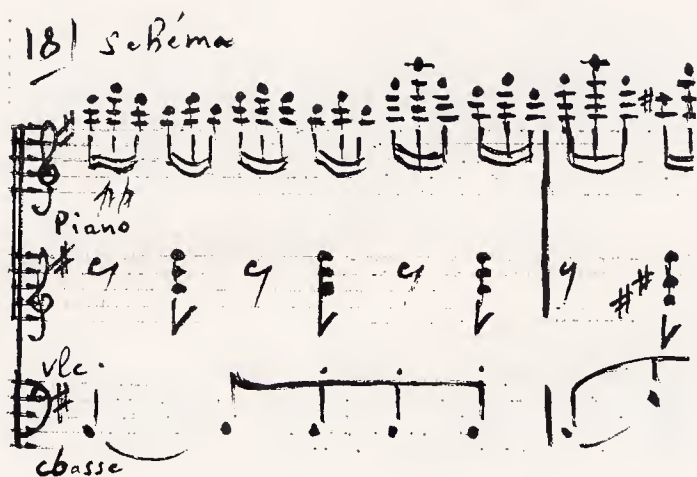 18) schéma
pp
Piano
vlc.
cbasse